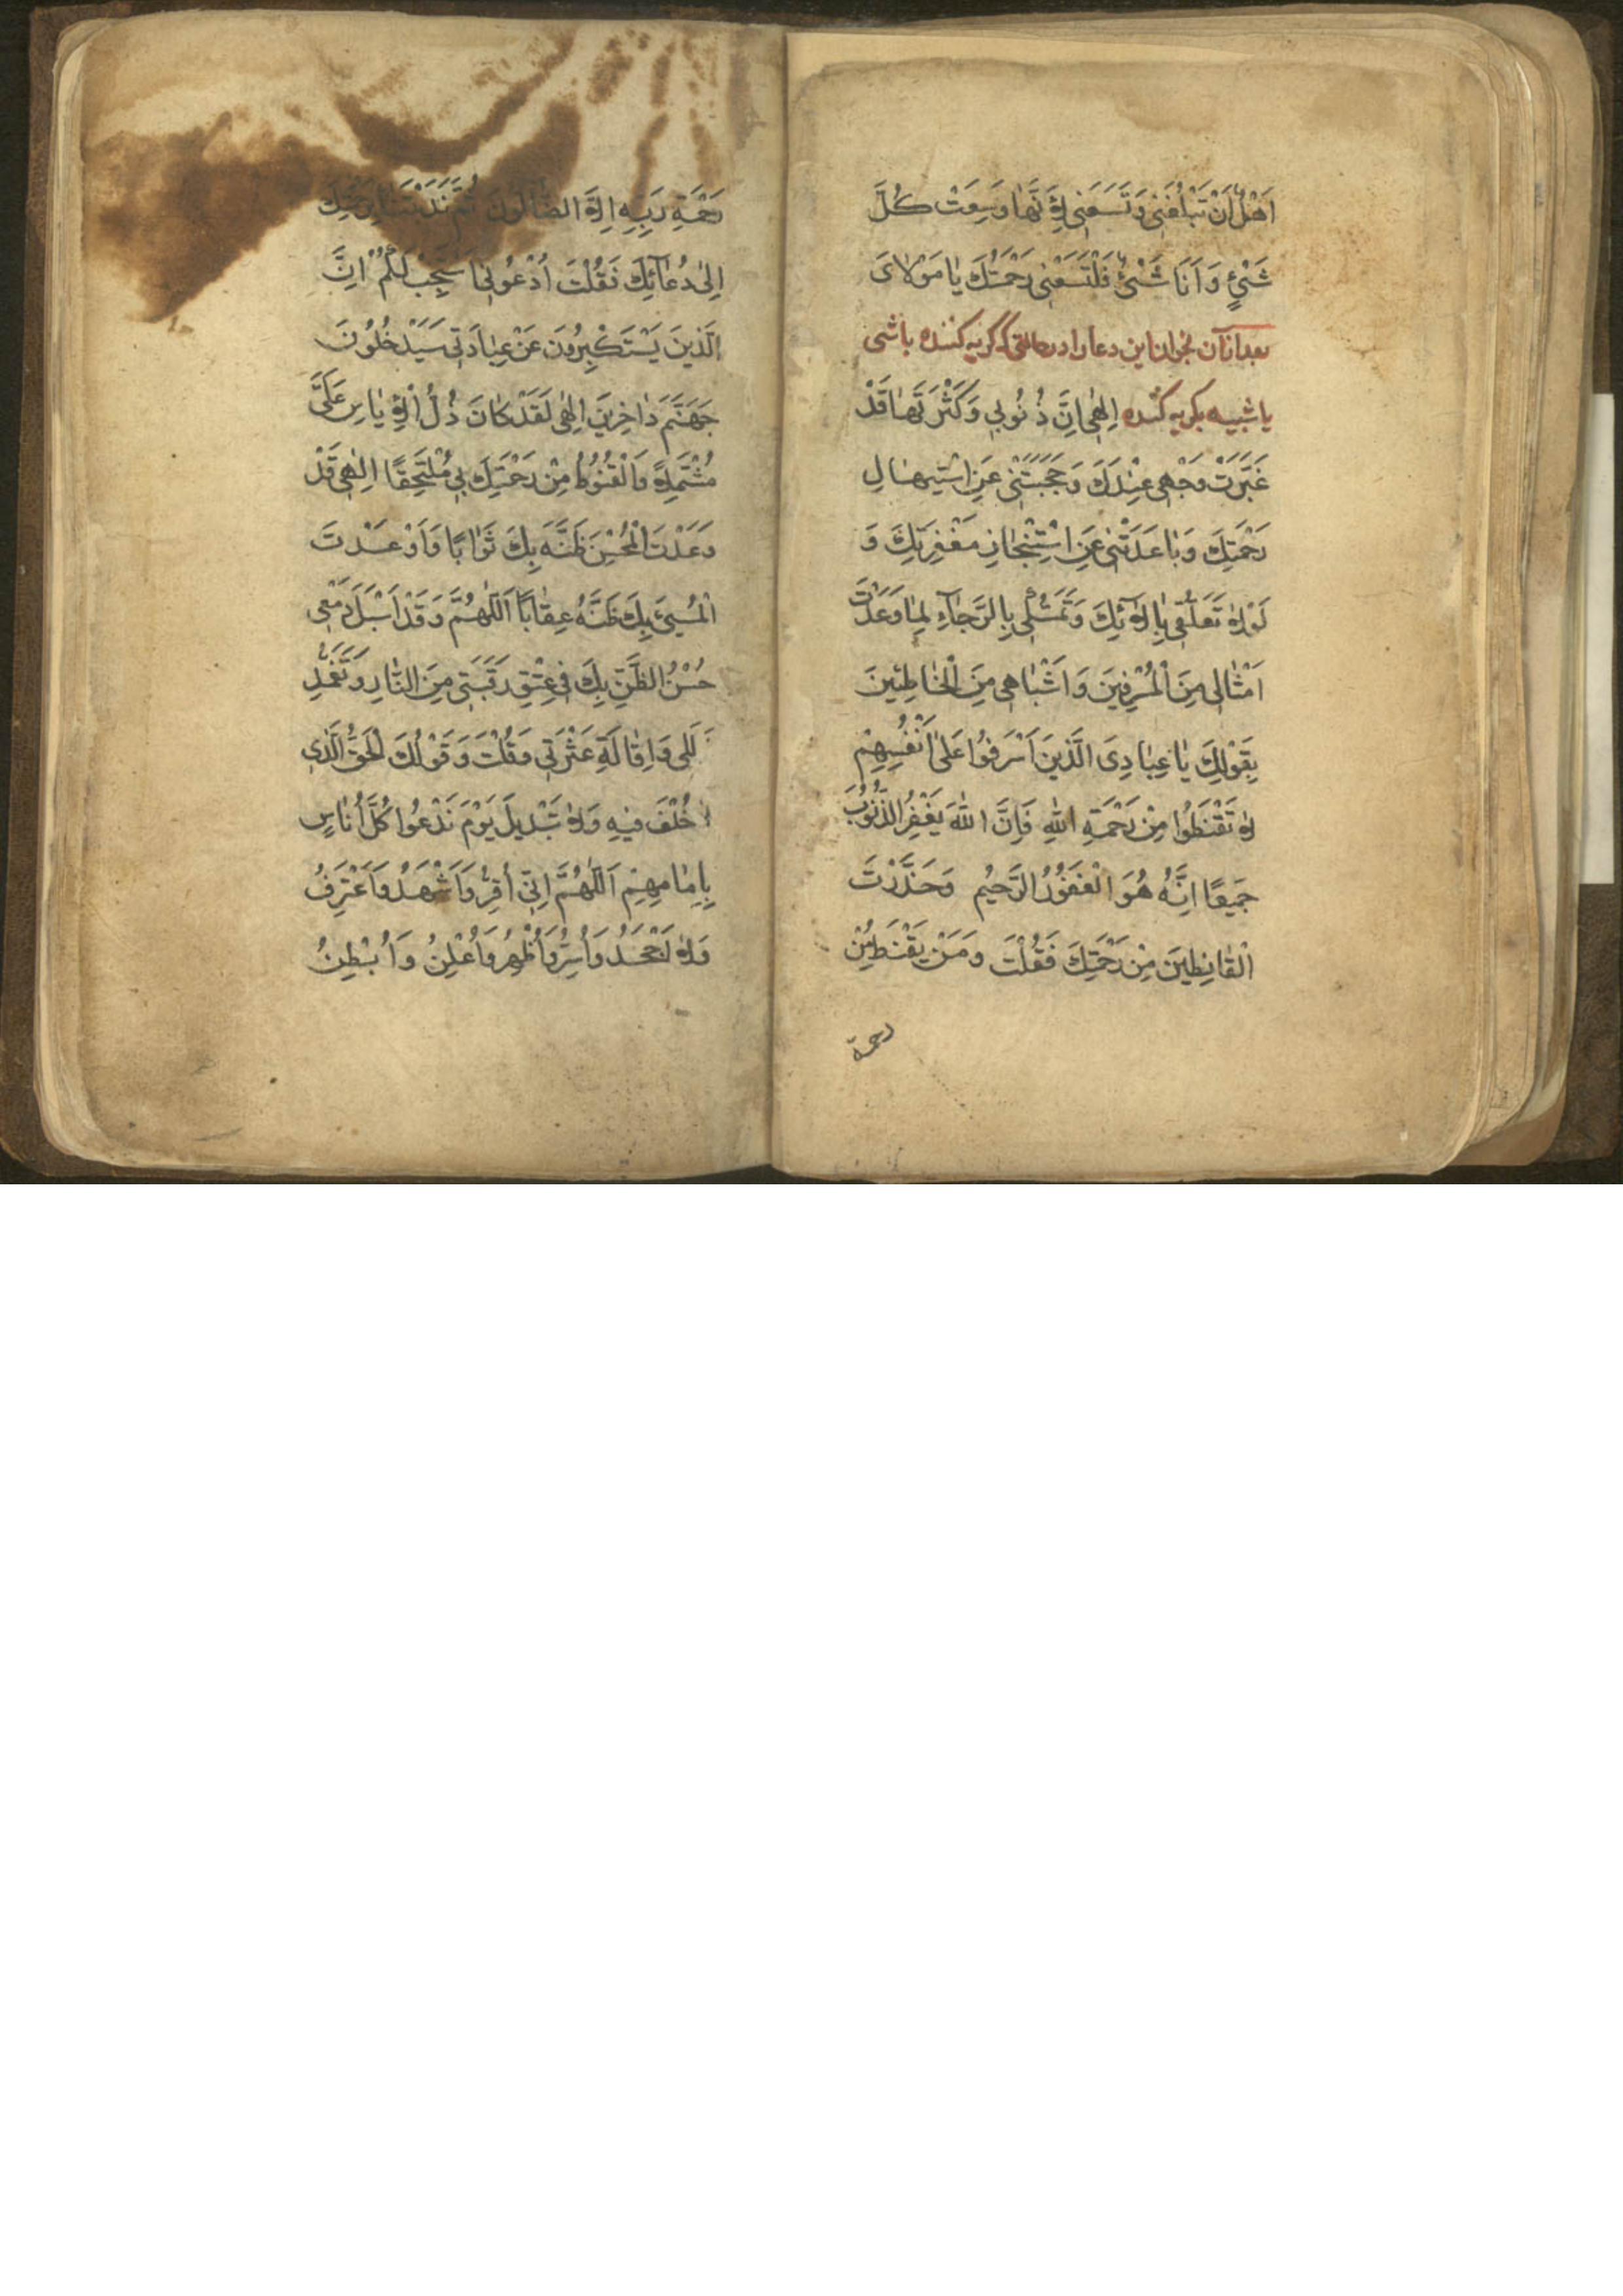 اَهْلٌ اَنْ تَبْلُغَنِی وَتَسَعَنِی لِاَنَّهَا وَسِعَتْ كُلَّ
شَیْئٍ وَ اَنَا شَیْئٌ فَلْتَسَعْنِی رَحْمَتُكَ یَا مَوْلَایَ
بعد از آن بخوان این دعا را در حالتی که گریه کننده باشی
یا شبیه بگریه کننده اِلٰهِی اِنَّ ذُنُوبِی وَكَثْرَتَهَا قَدْ
غَبَّرَتْ وَجْهِی عِنْدَكَ وَحَجَبَتْنِی عَنِ اسْتِیهَالِ
رَحْمَتِكَ وَبَاعَدَتْنِی عَنِ اسْتِنْجَازِ مَغْفِرَتِكَ وَ
لَوْلَا تَعَلُّقِی بِاٰلَائِكَ وَتَمَسُّكِی بِالرَّجَاءِ لِمَا وَعَدْتَ
اَمْثَالِی مِنَ الْمُسْرِفِینَ وَ اَشْبَاهِی مِنَ الْخَاطِئِینَ
بِقَوْلِكَ یَا عِبَادِیَ الَّذِینَ اَسْرَفُوا عَلٰی اَنْفُسِهِمْ
لَا تَقْنَطُوا مِنْ رَحْمَةِ اللّٰهِ فَاِنَّ اللّٰهَ یَغْفِرُ الذُّنُوبَ
جَمِیعًا اِنَّهُ هُوَ الْغَفُوُرُ الرَّحِیُم وَحَذَّرْتَ
الْقَانِطِینَ مِنْ رَحْمَتِكَ فَقُلْتَ وَمَنْ یَقْنَطُ مِنْ
رحمة
رَحْمَةِ رَبِّهِ اِلَّا الضَّالُّونَ ثُمَّ نَدَبْتَنَا بِرَحْمَتِكَ
اِلٰی دُعَائِكَ فَقُلْتَ اُدْعُونِی اَسْتَجِبْ لَكُمْ اِنَّ
الَّذِینَ یَسْتَكْبِرُونَ عَنْ عِبَادَتِی سَیَدْخُلُونَ
جَهَنَّمَ دَاخِرِینَ اِلٰهِی لَقَدْ كَانَ ذُلُّ الْاِیَاسِ عَلَیَّ
مُشْتَمِلًا وَالْقُنُوطُ مِنْ رَحْمَتِكَ بِی مُلْتَحِقًا اِلٰهِی قَدْ
وَعَدْتَ الْمُحْسِنَ ظَنَّهُ بِكَ ثَوَابًا وَاَوْعَدْتَ
الْمُسِیئَ بِكَ ظَنَّهُ عِقَابًا اَللّٰهُمَّ وَقَدْ اَسْبَلَ دَمْعِی
حُسْنُ الظَّنِّ بِكَ فِی عِتْقِ رَقَبَتِی مِنَ النَّارِ وَتَغَمُّدِ
زَلَلِی وَاِقَالَةِ عَثْرَتِی وَقُلْتَ وَقَوْلُكَ الْحَقُّ الَّذِی
لَا خُلْفَ فِیهِ وَلَا تَبْدِیلَ یَوْمَ نَدْعُوا كُلَّ اُنَاسٍ
بِاِمَامِهِمْ اَللّٰهُمَّ اِنِّی اُقِرُّ وَاَشْهَدُ وَاَعْتَرِفُ
وَلَا اَجْحَدُ وَاُسِرُّ وَاُظْهِرُ وَاُعْلِنُ وَاُبْطِنُ